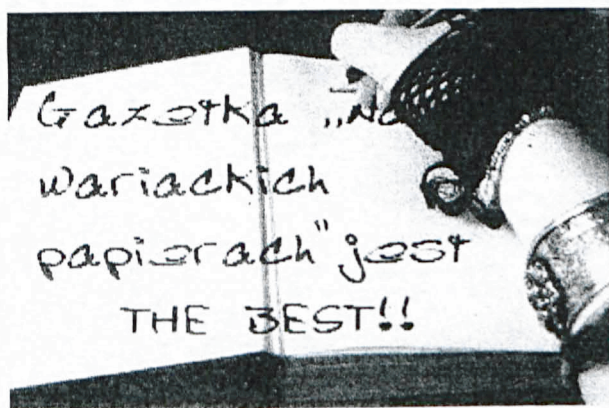 Gazetka „Na
wariackich
papierach" jest
THE BEST!!